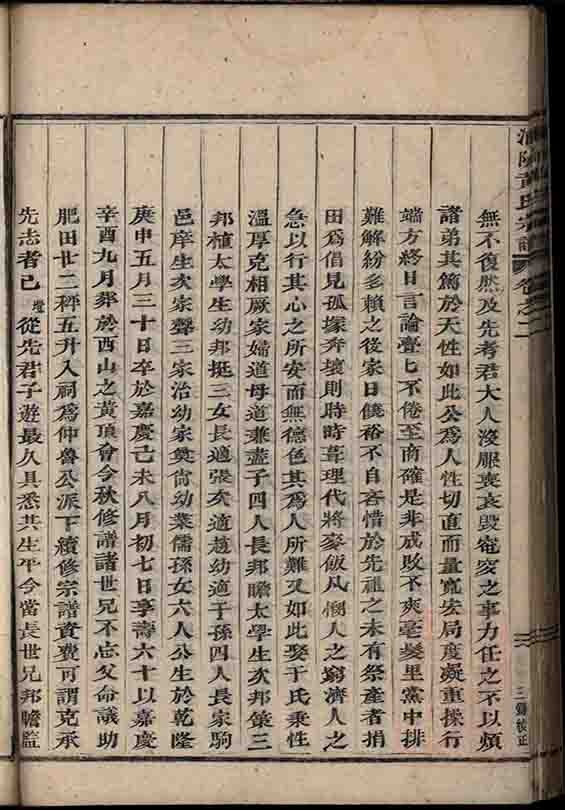 黃氏宗譜 卷之二
三錄校正
無不復然及先考君大人沒服喪哀毀窀穸之事力任之不以煩
諸弟其篤於天性如此公為人性切直而量寬宏局度凝重操行
端方終日言論亹亹不倦至商確是非成敗不爽毫髮里黨中排
難解紛多賴之後家日饒裕不自吝惜於先祖之未有祭產者捐
田為倡見孤塚奔壞則時時葺理代將麥飯凡憫人之窮濟人之
急以行其心之所安而無德色其為人所難又如此娶于氏秉性
溫厚克相厥家婦道母道兼盡子四人長邦瞻太學生次邦策三
邦植太學生幼邦挺三女長適張次適趙幼適于孫四人長家駒
邑庠生次家聲三家治幼家奠尚幼業儒孫女六人公生於乾隆
庚申五月三十日卒於嘉慶己未八月初七日享壽六十以嘉慶
辛酉九月葬於西山之黃頂會今秋修譜諸世兄不忘父命議助
肥田廿二秤五升入祠為仲魯公派下續修宗譜資費可謂克承
先志者已 從先君子遊最久具悉其生平今當長世兄邦瞻監